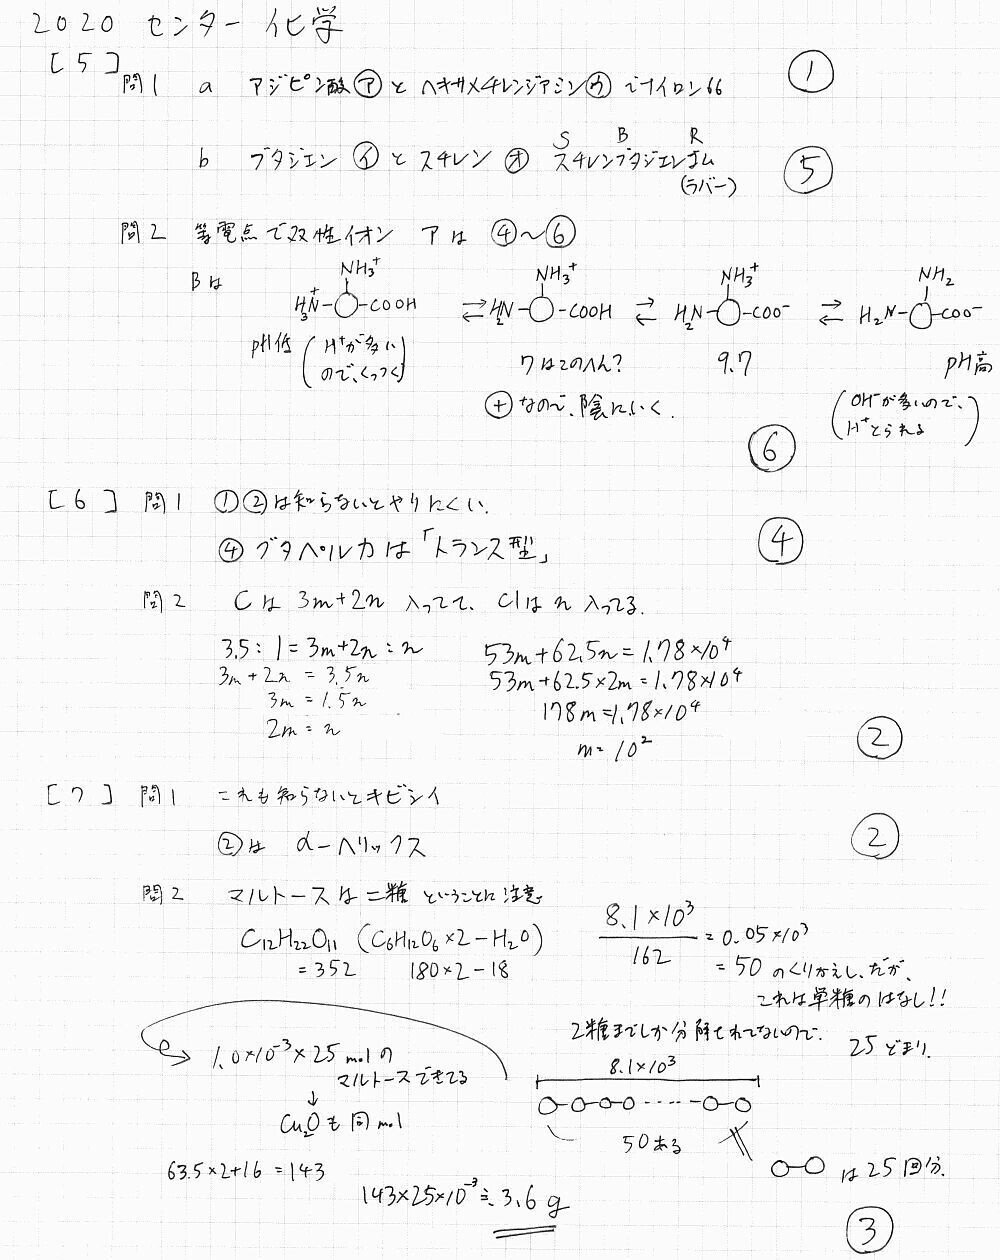 2020 センター 化学
[5]
問1 a アジピン酸㋐とヘキサメチレンジアミン㋒でナイロン66 ①
S B R
b ブタジエン㋑とスチレン㋔ スチレンブタジエンゴム ⑤
(ラバー)
問2 等電点で双性イオン アは ④〜⑥
Bは
NH₃⁺ NH₃⁺ NH₃⁺ NH₂
H₃N⁺-○-COOH ⇄ H₂N-○-COOH ⇄ H₂N-○-COO⁻ ⇄ H₂N-○-COO⁻
pH低 (H⁺が多いので、くっつく) 7はこのへん? 9.7 pH高
⊕なので、陰にいく. (OH⁻が多いので、H⁺とられる)
⑥
[6] 問1 ①②は知らないとやりにくい. ④
④ グタペルカは「トランス型」
問2 Cは 3m+2n 入ってて、Clは n 入ってる.
3.5:1=3m+2n:n 53m+62.5n=1.78×10⁴
3m+2n=3.5n 53m+62.5×2m=1.78×10⁴
3m=1.5n 178m=1.78×10⁴
2m=n m=10²
②
[7] 問1 これも知らないとキビシイ
②は α-ヘリックス ②
問2 マルトースは二糖ということに注意
C₁₂H₂₂O₁₁ (C₆H₁₂O₆×2-H₂O)
=352 180×2-18
8.1×10³/162=0.05×10³
=50 のくりかえし、だが、
これは単糖のはなし!!
2糖までしか分解されてないので. 25どまり.
1.0×10⁻³×25molの
マルトースできてる
↓
Cu₂Oも同mol
8.1×10³
○-○-○-○-----○-○
50ある
○-○は25回分.
63.5×2+16=143
143×25×10⁻³≒3.6g
③